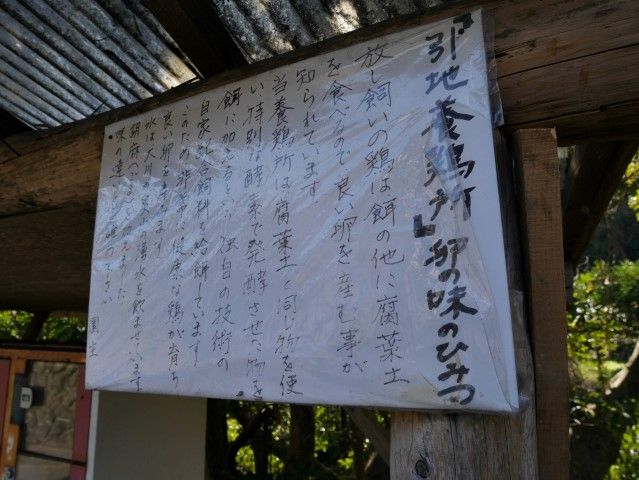 『引地養鶏所』卵の味のひみつ
放し飼いの鶏は餌の他に腐葉土
を食べるので良い卵を産む事が
知られています
当養鶏所は腐葉土と同じ物を使
い特別な酵素で発酵させた物を
餌に加えるという独自の技術の
自家配合飼料を給餌しています
このため非常に健康な鶏が育ち
良い卵を産みます
湧水を飲ませています
胡麻
味の違いを
園主